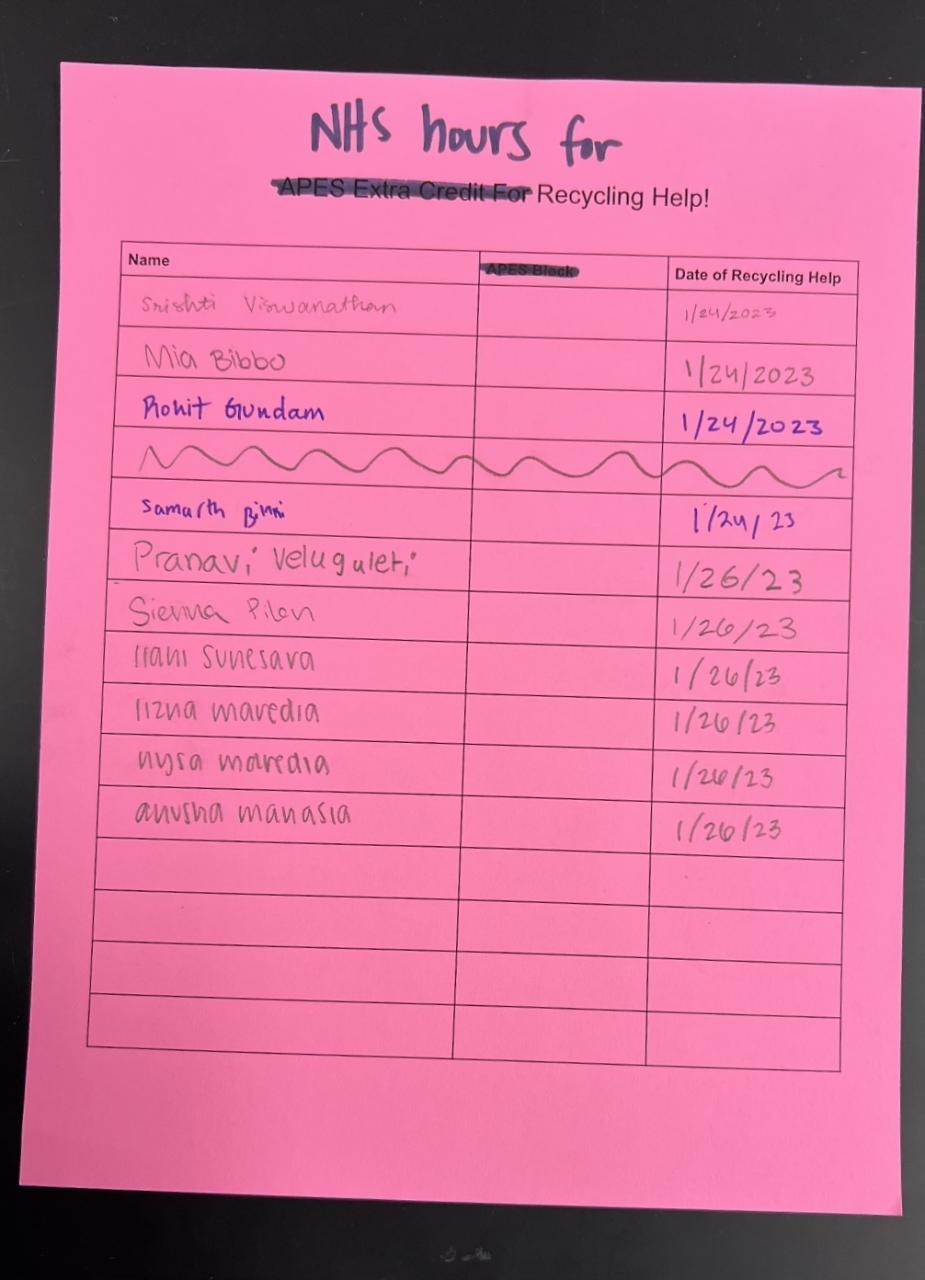 NHS hours for
APES Extra Credit For Recycling Help!
Name APES Block Date of Recycling Help
Srishti Viswanathan 1/24/2023
Mia Bibbo 1/24/2023
Rohit Gundam 1/24/2023
Samarth 1/24/23
Pranavi Veluguleti 1/26/23
Sienna Pilon 1/26/23
Sunesara 1/26/23
maredia 1/26/23
nysa maredia 1/26/23
anusha manasia 1/26/23